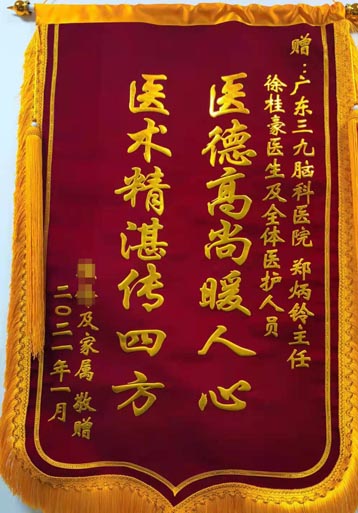 赠:广东三九脑科医院 郑炳铃主任
徐桂豪医生及全体医护人员
医德高尚暖人心
医术精湛传四方
及家属 敬赠
二〇二一年一月